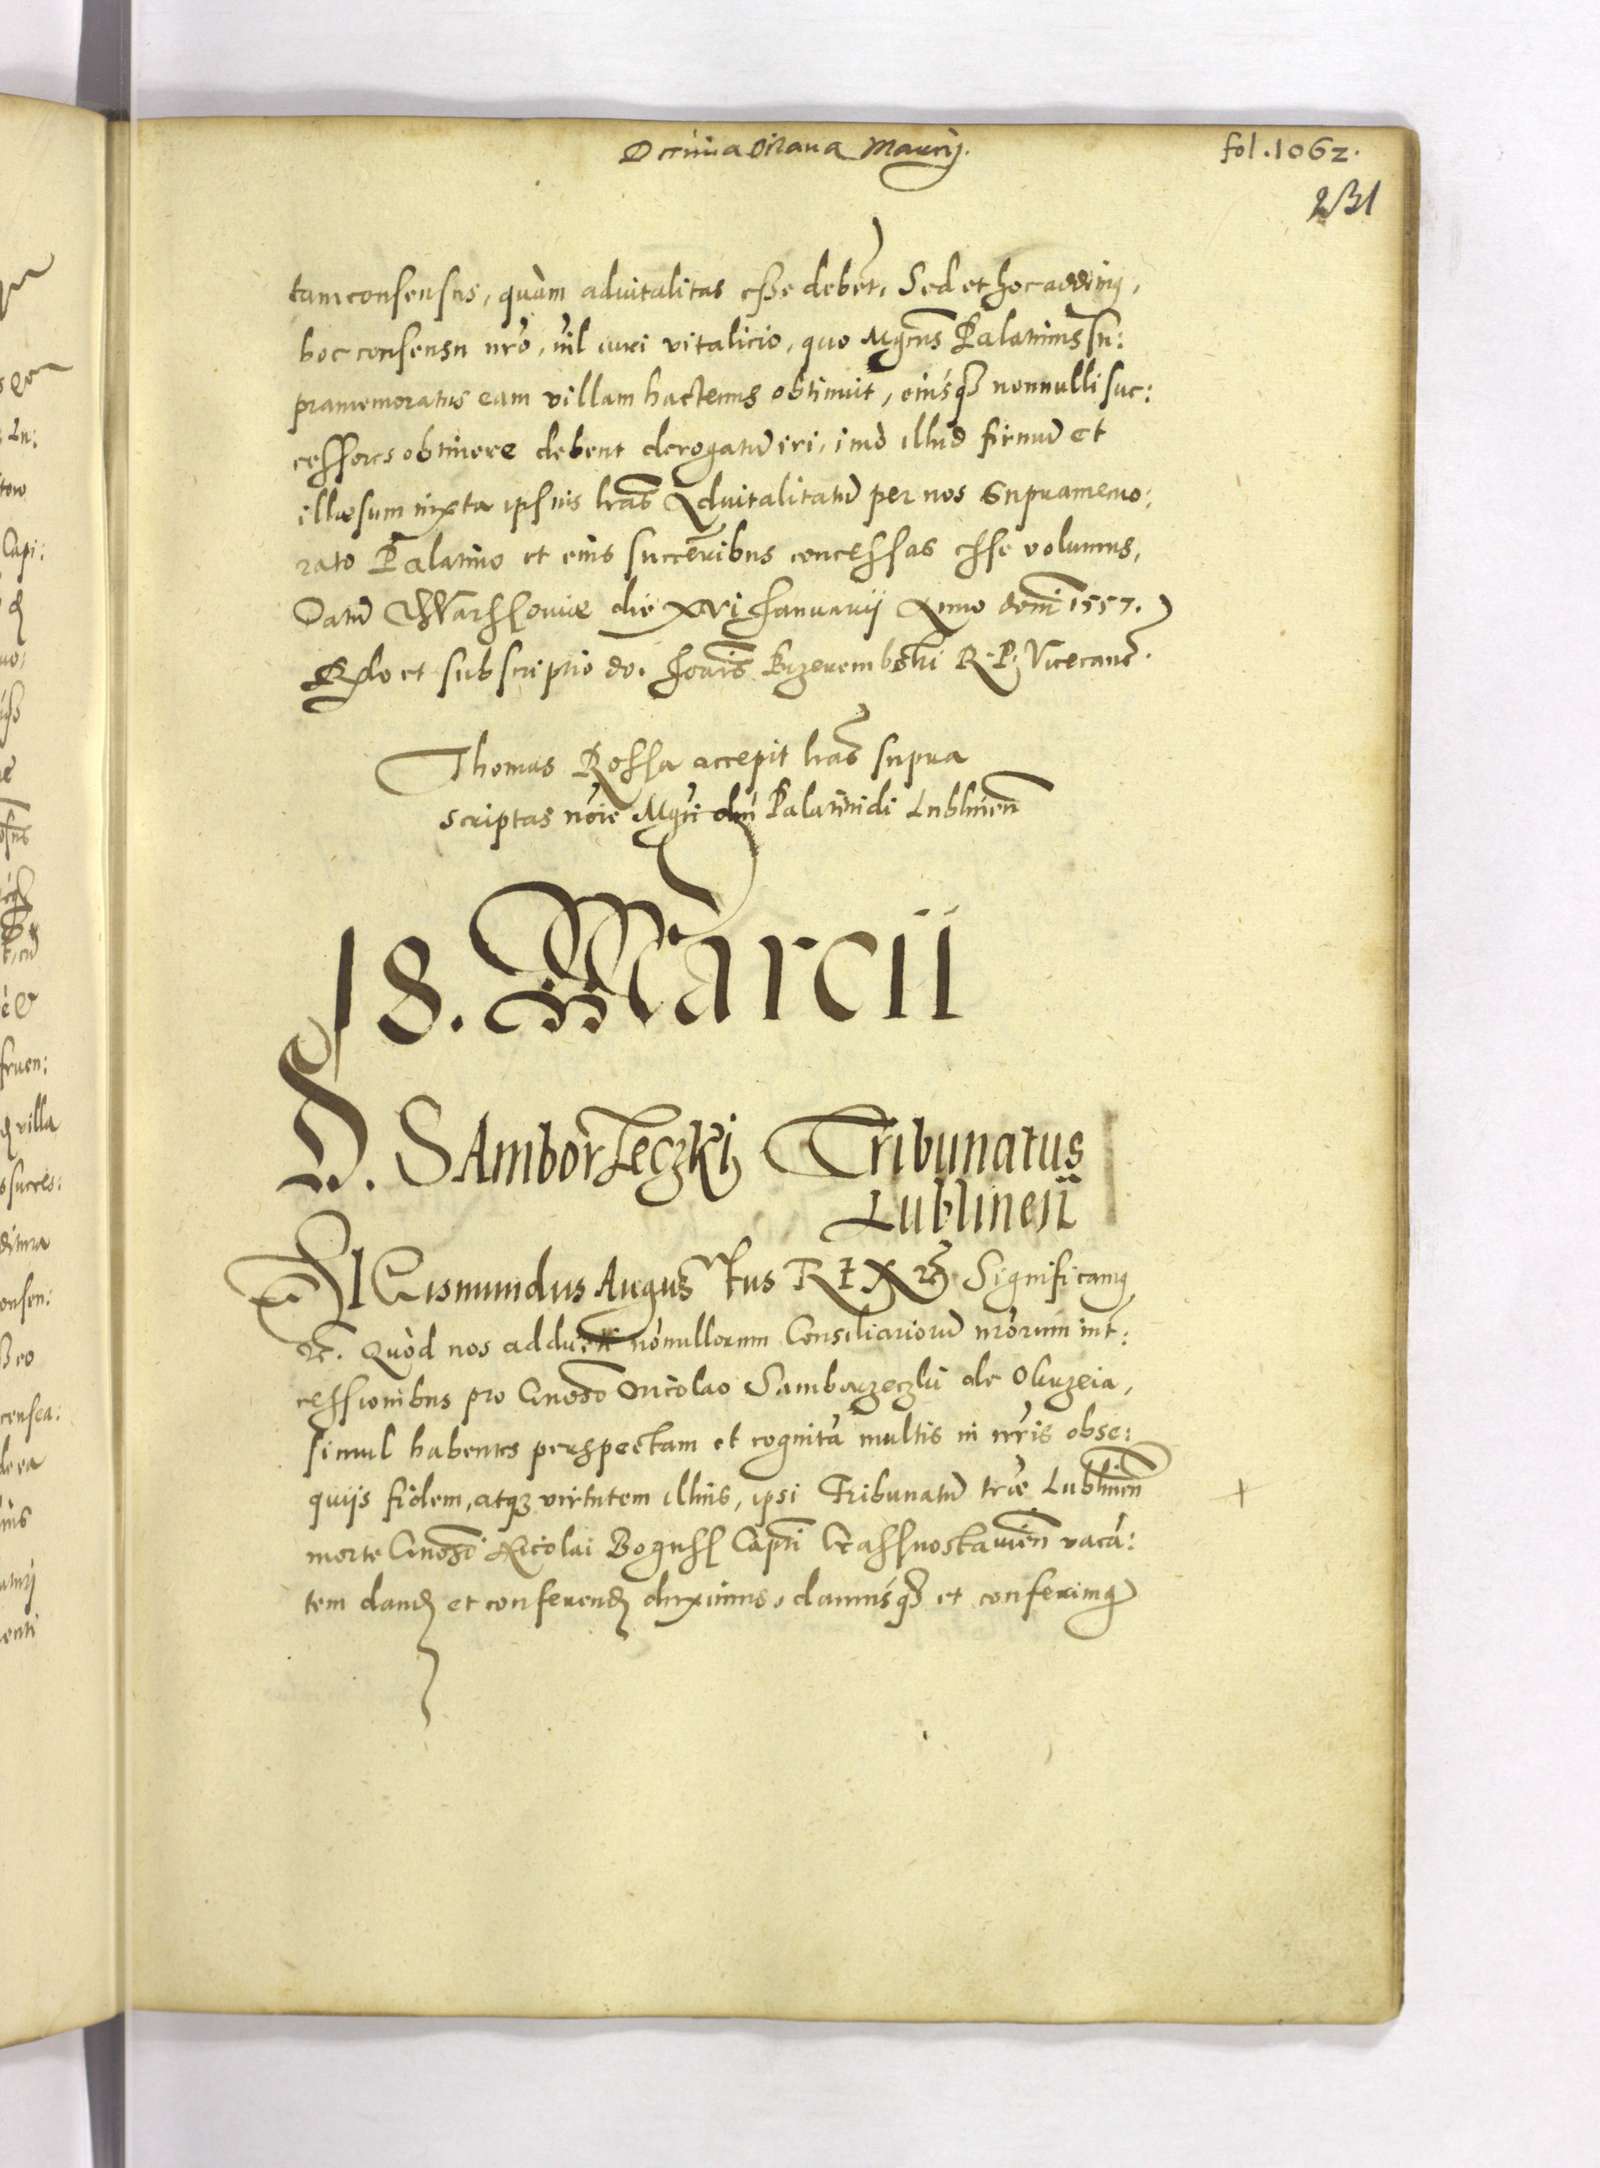 Decima octava Marcij.
fol. 1062.
231
tam consensus, quàm aduitalitas esse debet. Sed et hoc addimus,
hoc consensu nrõ, nil iuri vitalicio, quo Mgcus Palatinus su:
pramemoratus eam villam hactenus obtinuit, eiusq nonnulli suc:
cessores obtinere debent derogatũ iri, imo illud firmũ et
illæsum iuxta ipsius lrãs Aduitalitatũ per nos supramemo:
rato Palatino et eius succeribus concessas esse volumus,
Datũ Warssoviæ die xvi Januarij Anno domi 1557.
Relo et subscriptio do. Joañis Przerembski R. P. Vicecanc.
Thomas Rossa accepit lrãs supra
scriptas noie Mgci dni Palatinidi Lublineñ
18. Marcii
D. SAmborzeczkij Tribunatus
Lublineñ
SIGismundus Augustus REX rc. Significamus
rc. Quòd nos adducti nonullorum Consiliariorũ nrõrum int:
cessionibus pro Gnoso Nicolao Samborzeczki de Oluzeia,
simul habentes perspectam et cognitã multis in nr̃is obse:
quijs fidem, atq virtutem illius, ipsi Tribunatũ tr̃æ Lublineñ
+
morte Gnosi Nicolai Boguss Capti Crassnostavieñ vacã:
tem dand et conferend duximus, damusq et conferimus